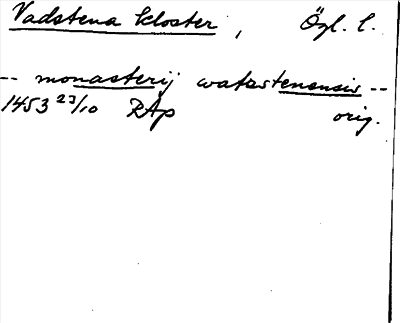 Vadstena kloster, Ögl. l.
-- monasterij watzstensis --
1453 23/10 RAp orig.